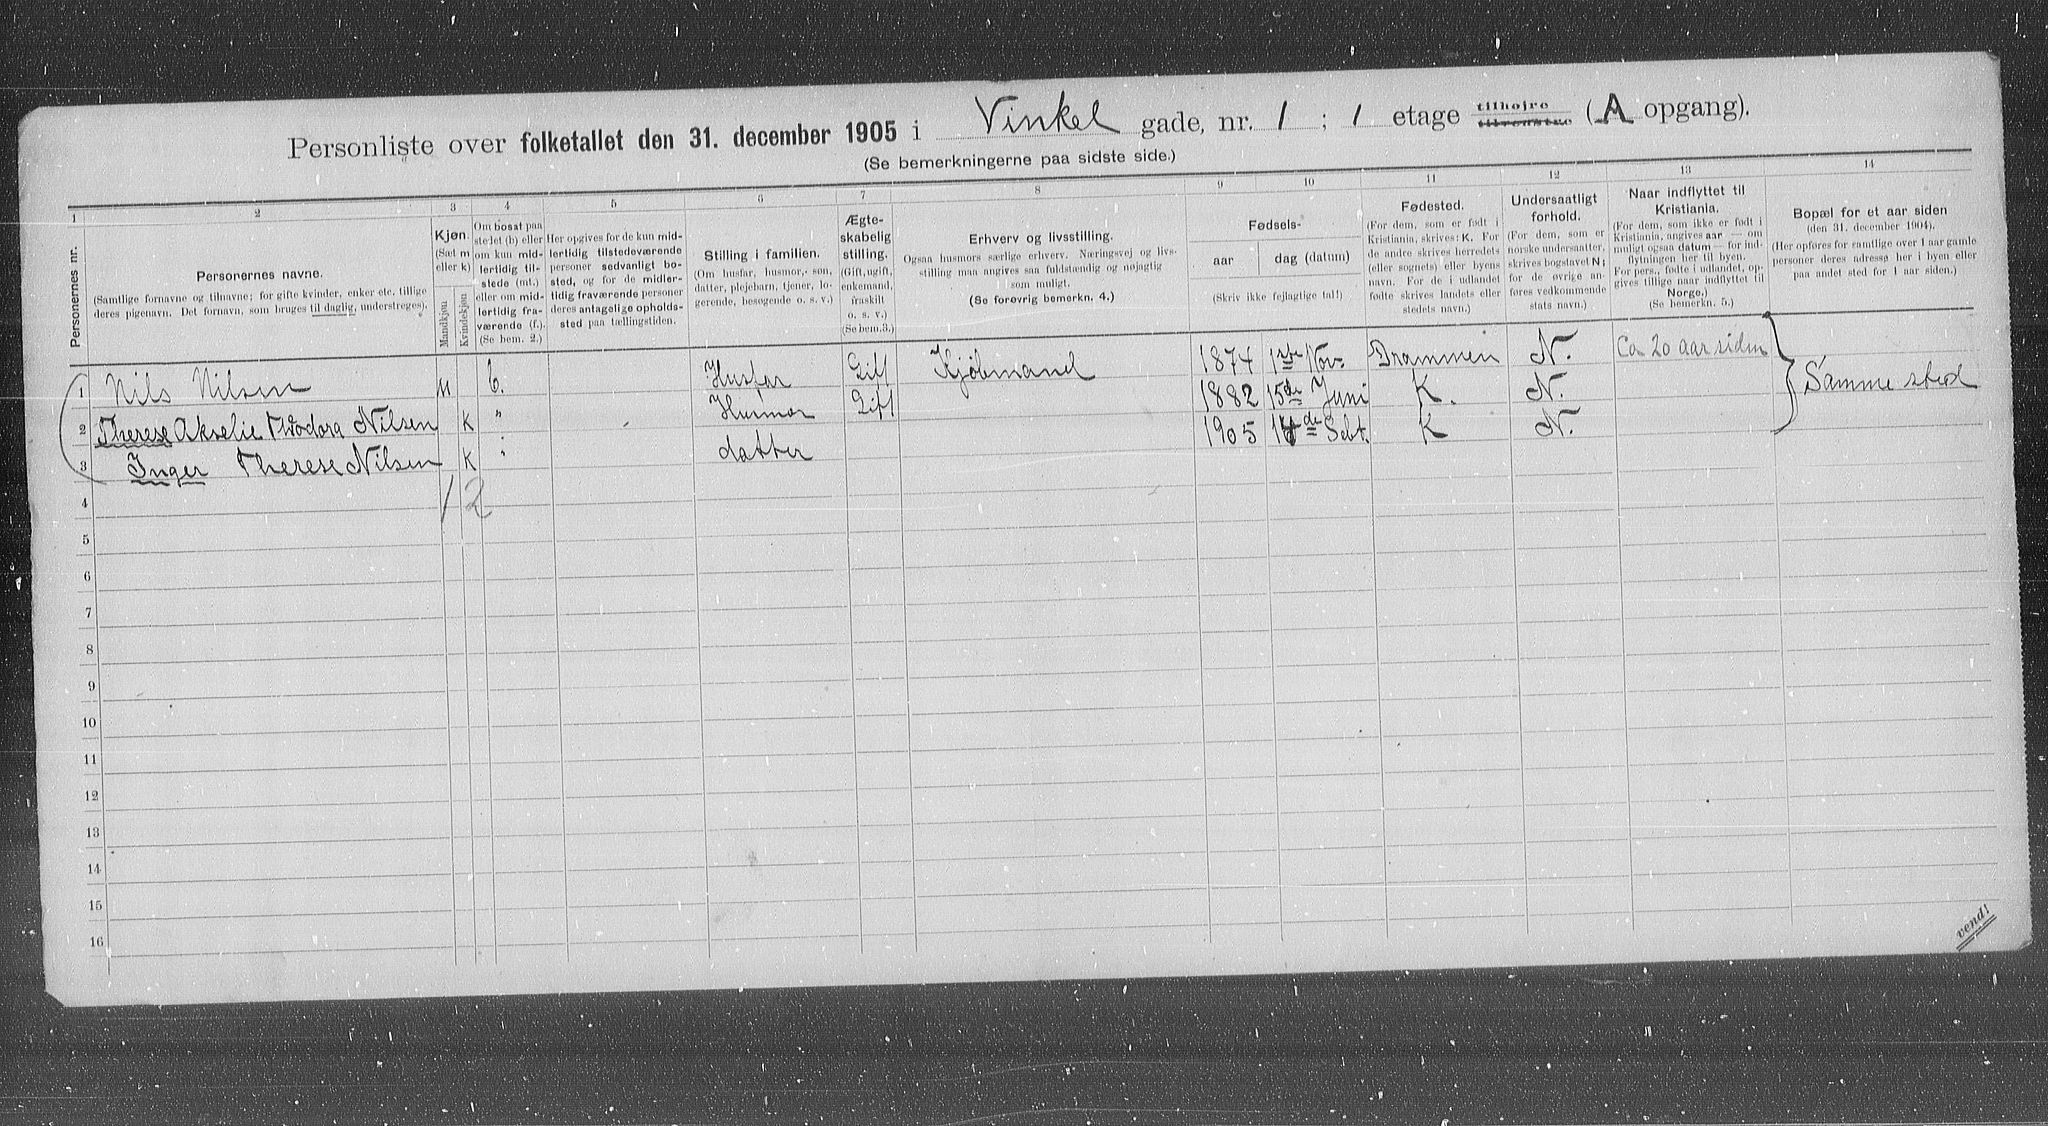 Personliste over folketallet den 31. december 1905 i Vinkel gade, nr. 1 ; 1 etage tilhøjre tilvenstre (A opgang).
(Se bemerkningerne paa sidste side.)
1 2 3 4 5 6 7 8 9 10 11 12 13 14
Personernes nr.
Personernes navne.
(Samtlige fornavne og tilnavne; for gifte kvinder, enker etc. tillige
deres pigenavn. Det fornavn, som bruges til daglig, understreges).
Kjøn.
(Sæt m
eller k)
Mandkjøn
Kvindekjøn
Om bosat paa
stedet (b) eller
om kun mid-
lertidig til-
stede (mt.)
eller om mid-
lertidig fra-
værende (f.).
(Se bem. 2.)
Her opgives for de kun mid-
lertidig tilstedeværende
personer sedvanligt bo-
sted, og for de midler-
tidig fraværende personer
deres antagelige opholds-
sted paa tællingstiden.
Stilling i familien.
(Om husfar, husmor, søn,
datter, plejebarn, tjener, lo-
gerende, besøgende o. s. v.)
Ægte-
skabelig
stilling.
(Gift, ugift,
enkemand,
fraskilt
o. s. v.)
(Se bem. 3.)
Erhverv og livsstilling.
Ogsaa husmors særlige erhverv. Næringsvej og livs-
stilling maa angives saa fuldstændig og nøjagtig
som muligt.
(Se forøvrig bemerkn. 4.)
Fødsels-
aar
dag (datum)
(Skriv ikke fejlagtige tal!)
Fødested.
(For dem, som er født i
Kristiania, skrives: K. For
de andre skrives herredets
(eller sognets) eller byens
navn. For de i udlandet
fødte skrives landets eller
stedets navn.)
Undersaatligt
forhold.
(For dem, som er
norske undersaatter,
skrives bogstavet N;
for de øvrige an-
føres vedkommende
stats navn.)
Naar indflyttet til
Kristiania.
(For dem, som ikke er født i
Kristiania, angives aar — om
muligt ogsaa datum — for ind-
flytningen her til byen.
For pers., fødte i udlandet, op-
gives tillige naar indflyttet til
Norge.)
(Se bemerkn. 5.)
Bopæl for et aar siden
(den 31. december 1904).
(Her opføres for samtlige over 1 aar gamle
personer deres adresse her i byen eller
paa andet sted for 1 aar siden.)
1 Nils Nilsen M b. Husfar Gift Kjøbmand 1874 1ste Nov. Drammen N. Ca 20 aar siden
2 Therese Akselie Theodora Nilsen K " Husmor Gift 1882 15de Juni K. N. Samme sted
3 Inger Therese Nilsen K " datter 1905 de Sebt. K N.
4 1 2
5
6
7
8
9
10
11
12
13
14
15
16
vend!